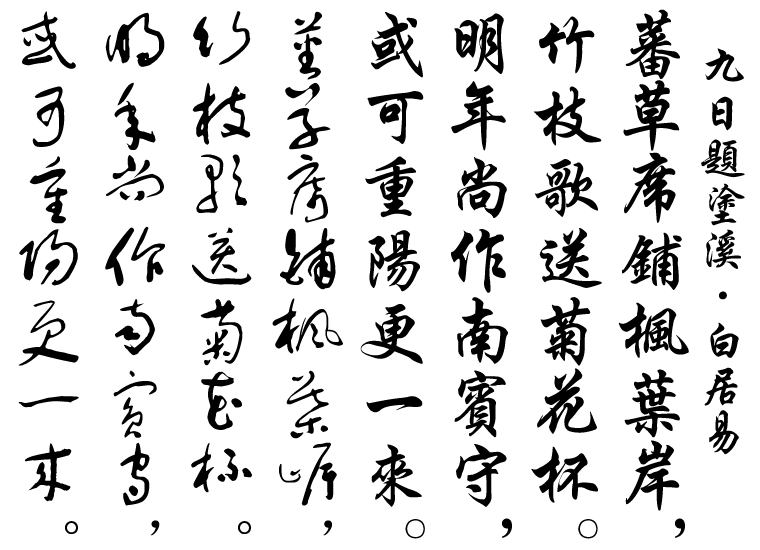 九日題塗溪・白居易
蕃草席鋪楓葉岸，
竹枝歌送菊花杯。
明年尚作南賓守，
或可重陽更一來。
蕃草席鋪楓葉岸，
竹枝歌送菊花杯。
明年尚作南賓守，
或可重陽更一來。